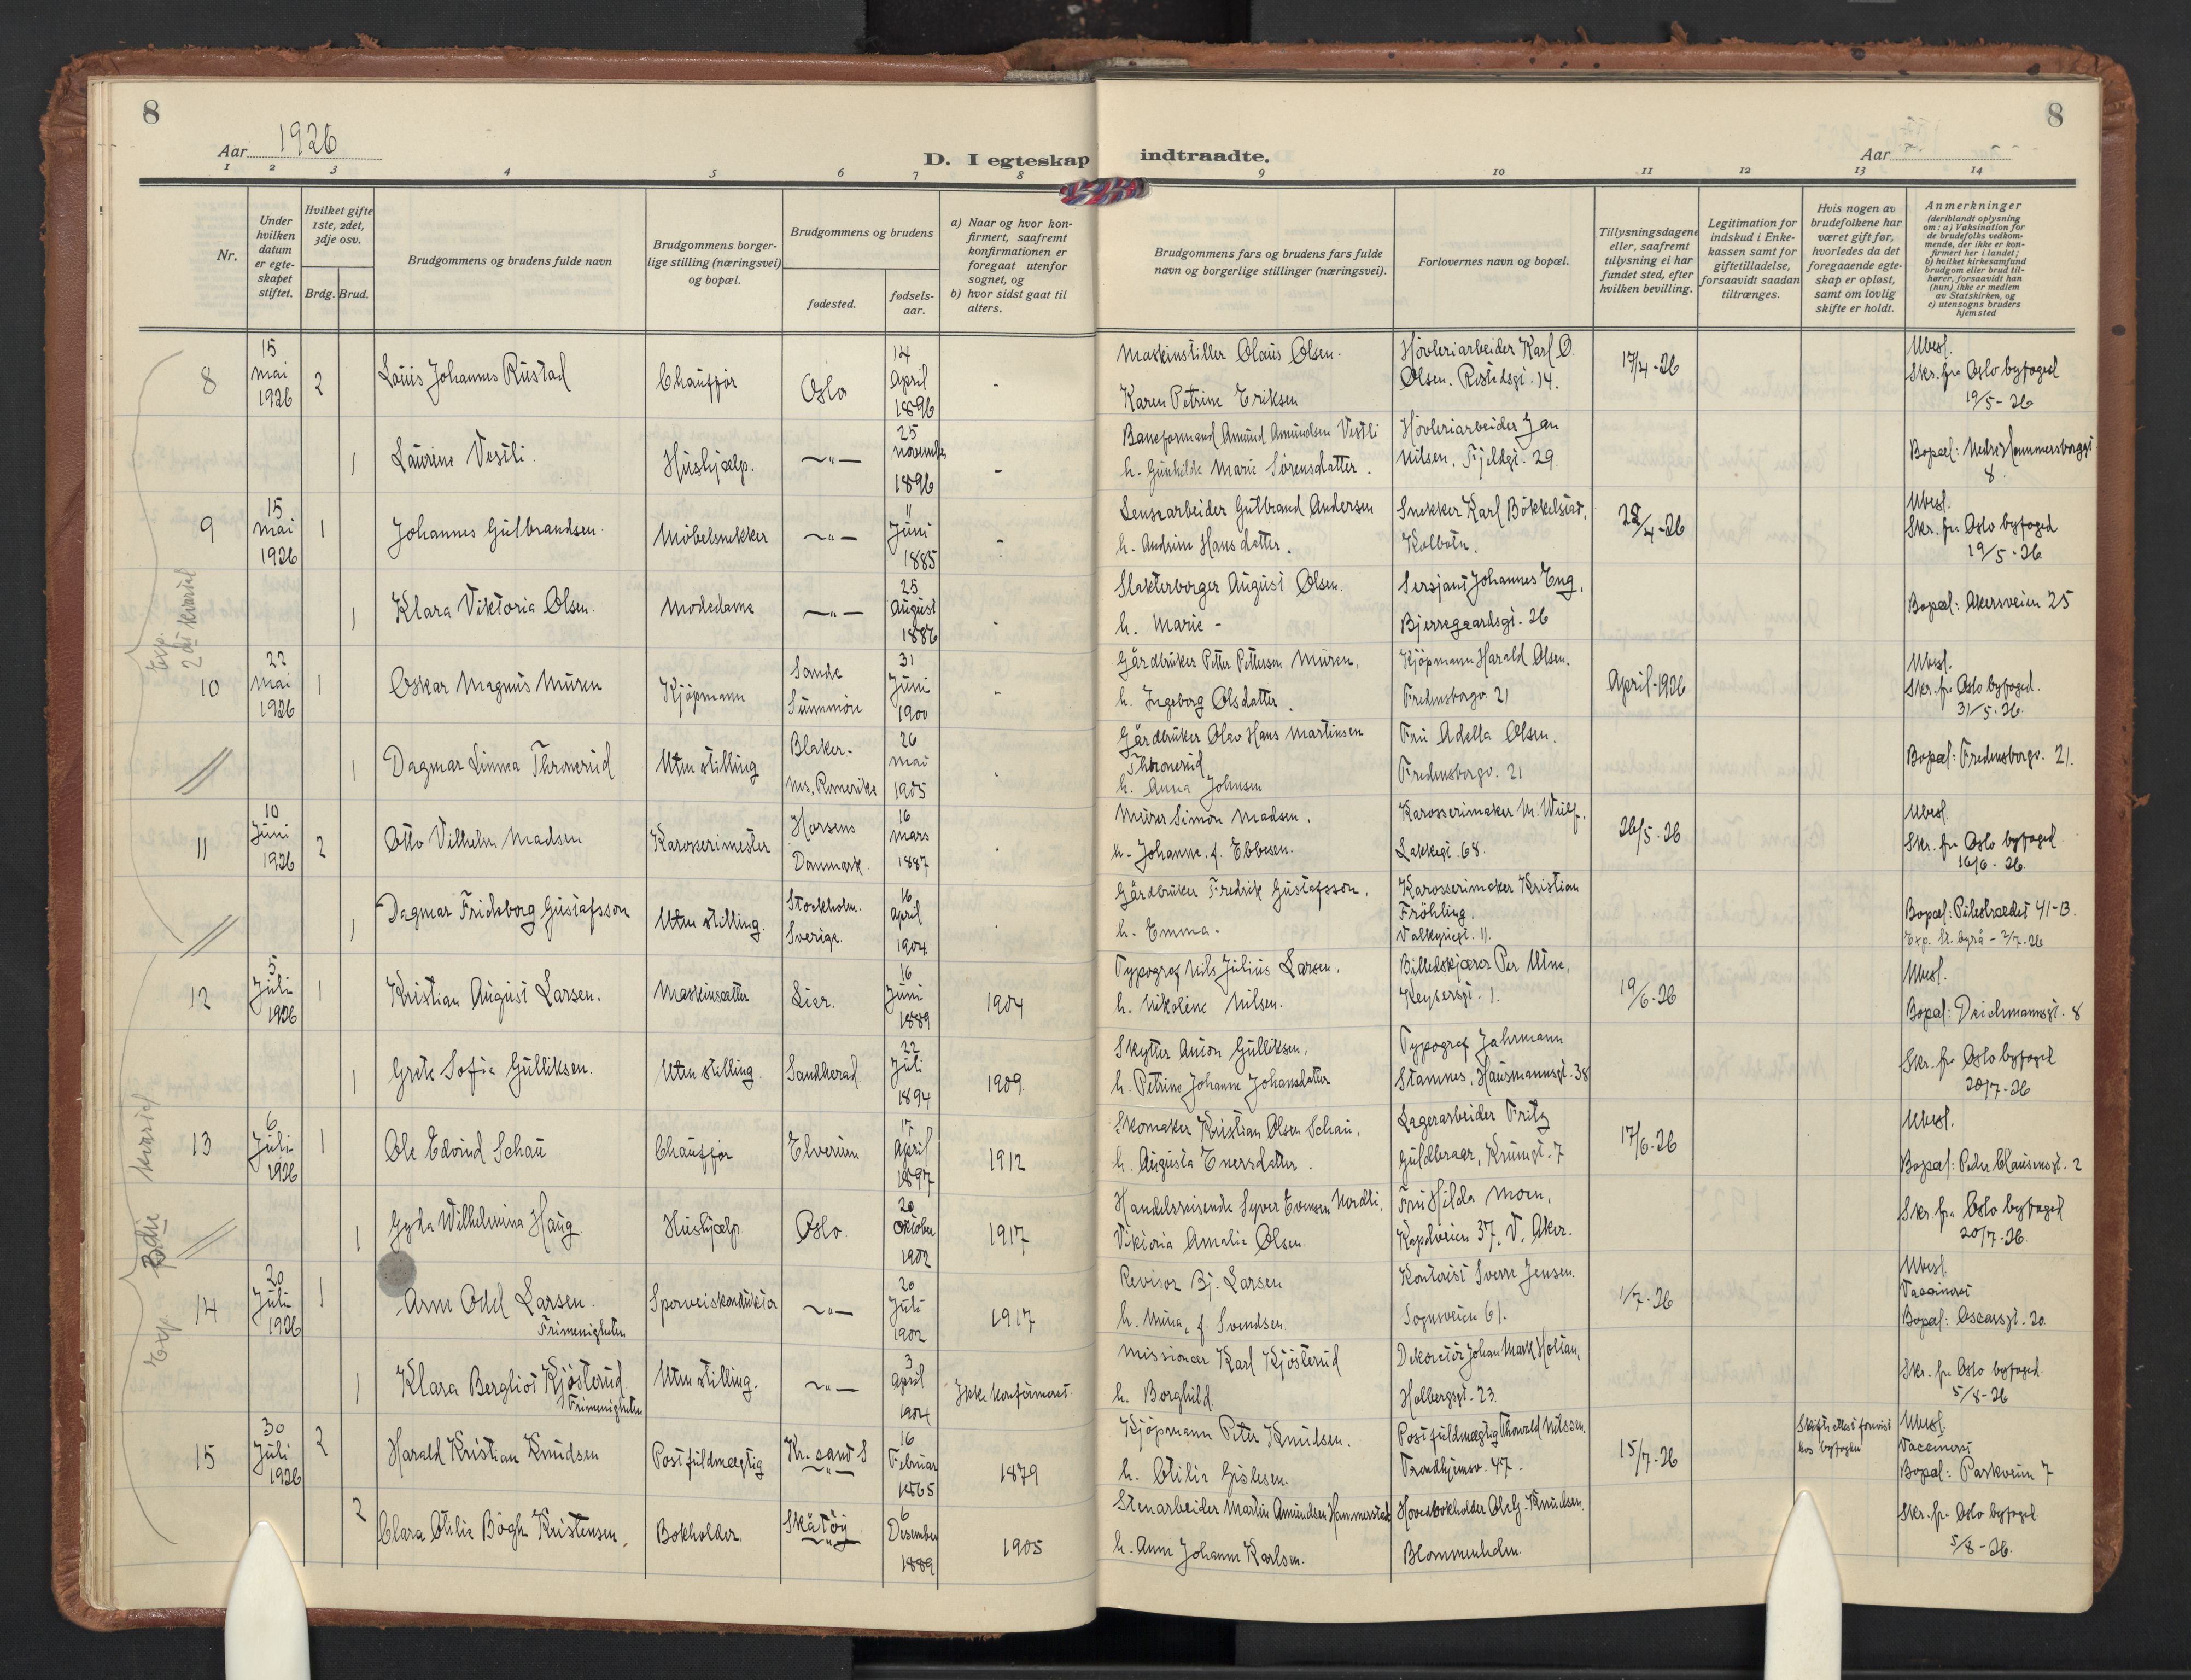 8
8
Aar 1926
D. I egteskap indtraadte.
Aar
1 2 3 4 5 6 7 8 9 10 11 12 13 14
Nr.
Under hvilken datum er egte-skapet stiftet.
Hvilket gifte 1ste, 2det, 3dje osv.
Brdg. Brud.
Brudgommens og brudens fulde navn
Brudgommens borger-lige stilling (næringsvei) og bopæl.
Brudgommens og brudens
fødested.
fødsels-aar.
a) Naar og hvor kon-firmert, saafremt konfirmationen er foregaat utenfor sognet, og
b) hvor sidst gaat til alters.
Brudgommens fars og brudens fars fulde navn og borgerlige stillinger (næringsvei).
Forlovernes navn og bopæl.
Tillysningsdagene eller, saafremt tillysning ei har fundet sted, efter hvilken bevilling.
Legitimation for indskud i Enke-kassen samt for giftetilladelse, forsaavidt saadan tiltrænges.
Hvis nogen av brudefolkene har været gift før, hvorledes da det foregaaende egte-skap er opløst, samt om lovlig skifte er holdt.
Anmerkninger
(deriblandt oplysning om: a) Vaksination for de brudefolks vedkom-mende, der ikke er kon-firmert her i landet; b) hvilket kirkesamfund brudgom eller brud til-hører, forsaavidt han (hun) ikke er medlem av Statskirken, og c) utensogns bruders hjemsted
8 15 mai 1926 2 Louis Johannes Rustad Chauffør Oslo 14 April 1896 - Maskinstiller Olaus Olsen. Karen Petrine Eriksen Høvleriarbeider Karl O. Olsen. Rostedsgt. 14. 17/4-26 Ubesl. Skr. fra Oslo byfoged 19/5-26
1 Laurine Vestli. Hushjælp. -"- 25 november 1896 - Baneformand Amund Amundsen Vestli h. Gunhilde Marie Sørensdatter. Høvleriarbeider Jan Nilsen, Fjeldgt. 29. Bopæl: Nedre Hammersborggt 8.
9 15 mai 1926 1 Johannes Gulbrandsen. Møbelsnekker -"- 11 Juni 1885 - Lensearbeider Gulbrand Andersen h. Andrine Hansdatter. Snekker Karl Bøkkelstad, Kolbotn. 22/4-26 Ubesl. Skr. fra Oslo byfoged 19/5-26
1 Klara Viktoria Olsen. Modedame -"- 25 August 1886 - Slakterborger August Olsen. h. Marie - Sersjant Johannes Eng, Bjerregaardsgt. 26 Bopæl: Akersveien 25
Exp. 2det kvartal
10 22 mai 1926 1 Oskar Magnus Muren Kjøpmann Sande Sunnmøre 31 Juni 1900 - Gårdbruker Petter Pettersen Muren, h. Ingeborg Olsdatter. Kjøpmann Harald Olsen. Fredensborgv. 21 April-1926 Ubesl. Skr. fra Oslo byfoged. 31/5-26.
1 Dagmar Linnea Thronerud Uten stilling Blaker. ns. Romerike 26 mai 1905 - Gårdbruker Olav Hans Martinsen Thronerud h. Anna Johnsen Fru Adella Olsen. Fredensborgv. 21 Bopæl: Fredensborgv. 21.
11 10 Juni 1926 2 Otto Vilhelm Madsen Karosserimester Horsens Danmark. 16 mars 1887 - Murer Simon Madsen. h. Johanne, f. Ebbesen. Karosserimaker M. Wulf. Lakkegt. 68. 26/5-26 Ubesl. Skr. fra Oslo byfoged. 16/6-26.
1 Dagmar Frideborg Gustafsson Uten stilling. Stockholm. Sverige. 16 april 1904 - Gårdbruker Fredrik Gustafsson. h. Emma. Karosserimaker Kristian Fröhling. Valkyriegt. 11. Bopæl: Pilestrædet 41-B. Exp. St. byrå - 2/7-26
12 5 Juli 1926 1 Kristian August Larsen. Maskinsetter Lier. 16 Juni 1889 1904 Typograf Nils Julius Larsen, h. Nikoline Nilsen. Billedskjærer Per Utne, Keysersgt. 1. 19/6-26 Ubesl. Bopæl: Deichmannsgt. 8
1 Grete Sofie Gulliksen. Uten stilling. Sandherad 22 Juli 1894 1909. Skytter Anton Gulliksen, h. Petrine Johanne Johansdatter Typograf Jahrmann Stamnes, Hausmannsgt. 38 Skr. fra Oslo byfoged 20/7-26
13 6 Juli 1926 1 Ole Edvind Schau Chauffør Elverum 17 April 1897 1912 Skomaker Kristian Olsen Schau, h. Augusta Enersdatter. Lagerarbeider Fritz Guldbraar, Krumgt. 7 17/6-26 Ubesl. Bopæl: Peder Clausensgt. 2
1 Gyda Wilhelmina Haug Hushjælp. Oslo. 20 Oktober 1902 1917 Handelsreisende Syver Evensen Nordli. Viktoria Amalie Olsen. Fru Hilda Moen, Kapelveien 37, V. Aker. Skr. fra Oslo byfoged 20/7-26.
Exp. 3die kvartal
14 20 Juli 1926 1 Arne Odel Larsen. Frimenigheten Sporveiskonduktør -"- 20 Juli 1902 1917 Revisor Bj. Larsen h. Mina, f. Svendsen. Kontorist Sverre Jensen. Sognsveien 61. 1/7-26 Ubesl. Vaccinert Bopæl: Oscarsgt. 20.
1 Klara Bergliot Kjøsterud Frimenigheten Uten stilling. -"- 3 april 1904 Ikke konfirmert. Missionær Karl Kjøsterud h. Borghild. Dekoratør Johan Mark Holian, Holbergsgt. 23. Skr. fra Oslo byfoged. 5/8-26
15 30 Juli 1926 2 Harald Kristian Knudsen Postfuldmægtig Kr.sand S -"- 16 Februar 1865 1879 Kjøpmann Peter Knudsen. h. Otilie Gislesen. Postfuldmægtig Thorvald Nilssen. Trondhjemsv. 47. 15/7-26 Skifteattest forevist hos byfogden Ubesl. Vaccinert Bopæl: Parkveien 7
2 Clara Otilie Bøgh Kristensen, Bokholder. Skåtøy. -"- 6 Desember 1889 1905 Stenarbeider Martin Amundsen Hammerstad h. Anne Johanne Karlsen. Hovedbokholder Ole G. Knudsen. Blommenholm. Skr. fra Oslo byfoged 5/8-26.